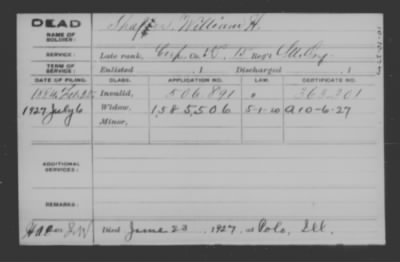 DEAD
NAME OF SOLDIER: William H.
SERVICE: Late rank, Co. 15 Reg't
TERM OF SERVICE: Enlisted , 1 Discharged , 1
DATE OF FILING. CLASS. APPLICATION NO. LAW. CERTIFICATE NO.
Invalid, 506.891
1927 July 6 Widow, 1,585,506 5-1-20 a 10-6-27
Minor,
ADDITIONAL SERVICES:
REMARKS:
Died June 23, 1927, at Polo, Ill.